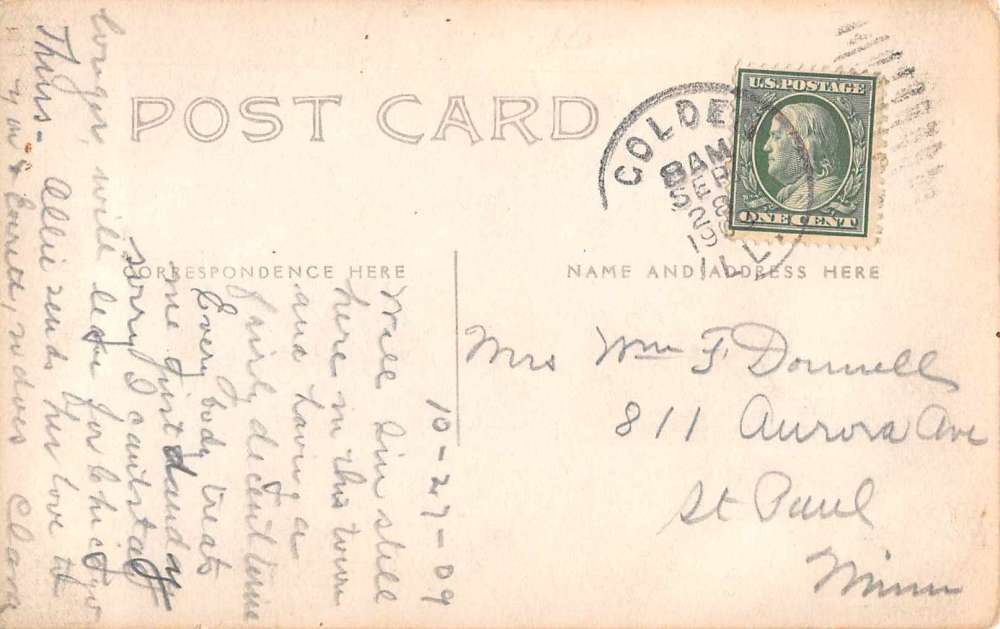 POST CARD
U.S. POSTAGE
ONE CENT
GOLDEN
8 AM
SEP
28
1909
ILL.
CORRESPONDENCE HERE
NAME AND ADDRESS HERE
Mrs Wm F Donnell
811 Aurora Ave
St Paul
Minn
10-27-09
Well I'm still
here in this town
and having a
fairly decent time
Every body treats
me just dandy
sorry I can't stay
longer, will leave for Chicago
Thurs- Allie sends her love to
you & Everett, so does Clara